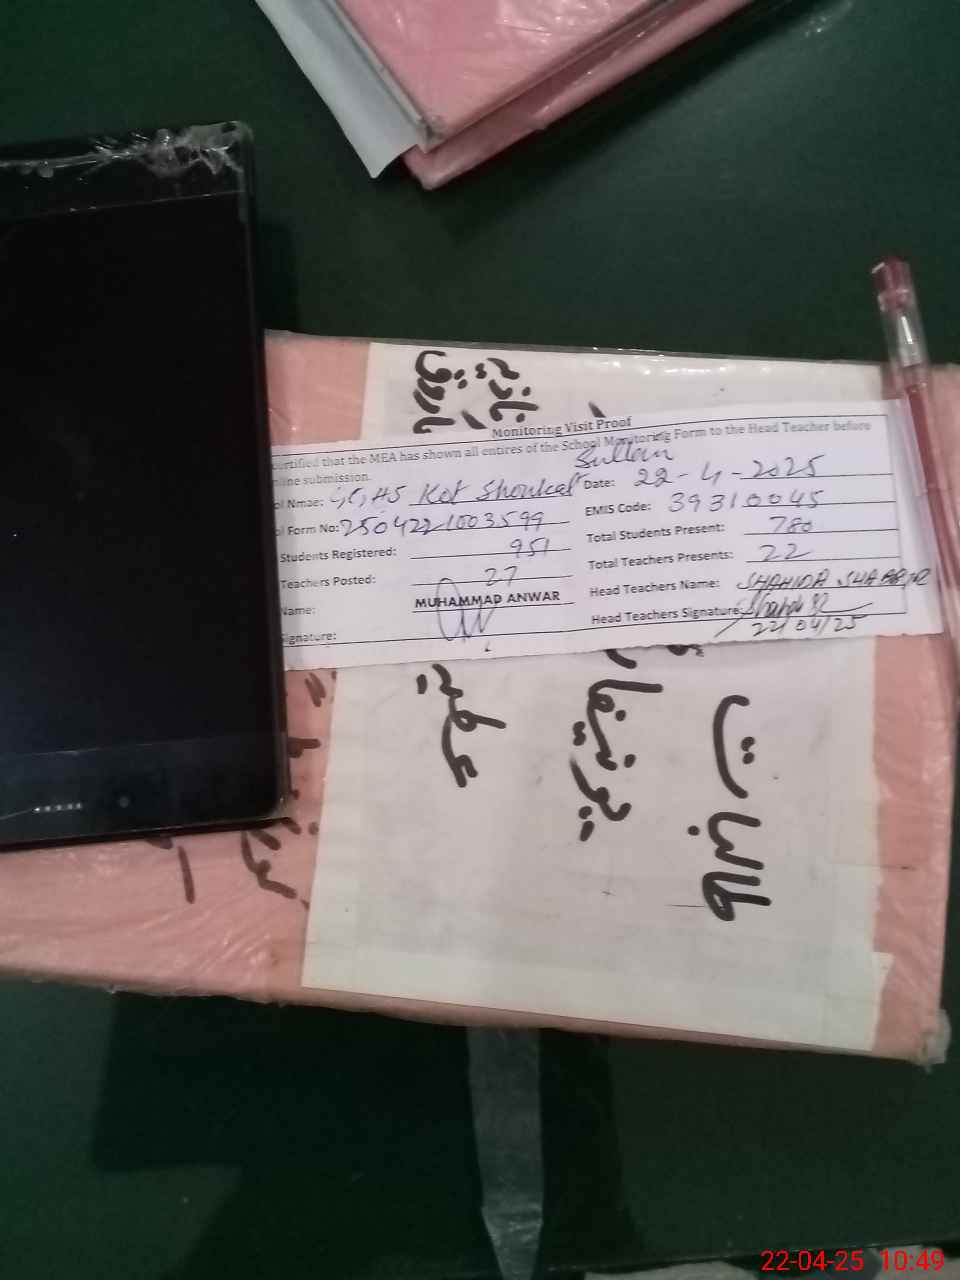 Monitoring Visit Proof
certified that the MEA has shown all entires of the School Monitoring Form to the Head Teacher before
line submission.
ol Nmae: GGHS Kot Shoukat Sultan
Date: 22-4-2025
ol Form No: 2504221003599
EMIS Code: 39310045
Students Registered: 951
Total Students Present: 780
Teachers Posted: 27
Total Teachers Presents: 22
Name: MUHAMMAD ANWAR
Head Teachers Name: SHAHIDA
ignature:
Head Teachers Signature:
22/04/25
طالبات
یونیفارم
عطیہ
نازیہ
فاروق
22-04-25 10:49